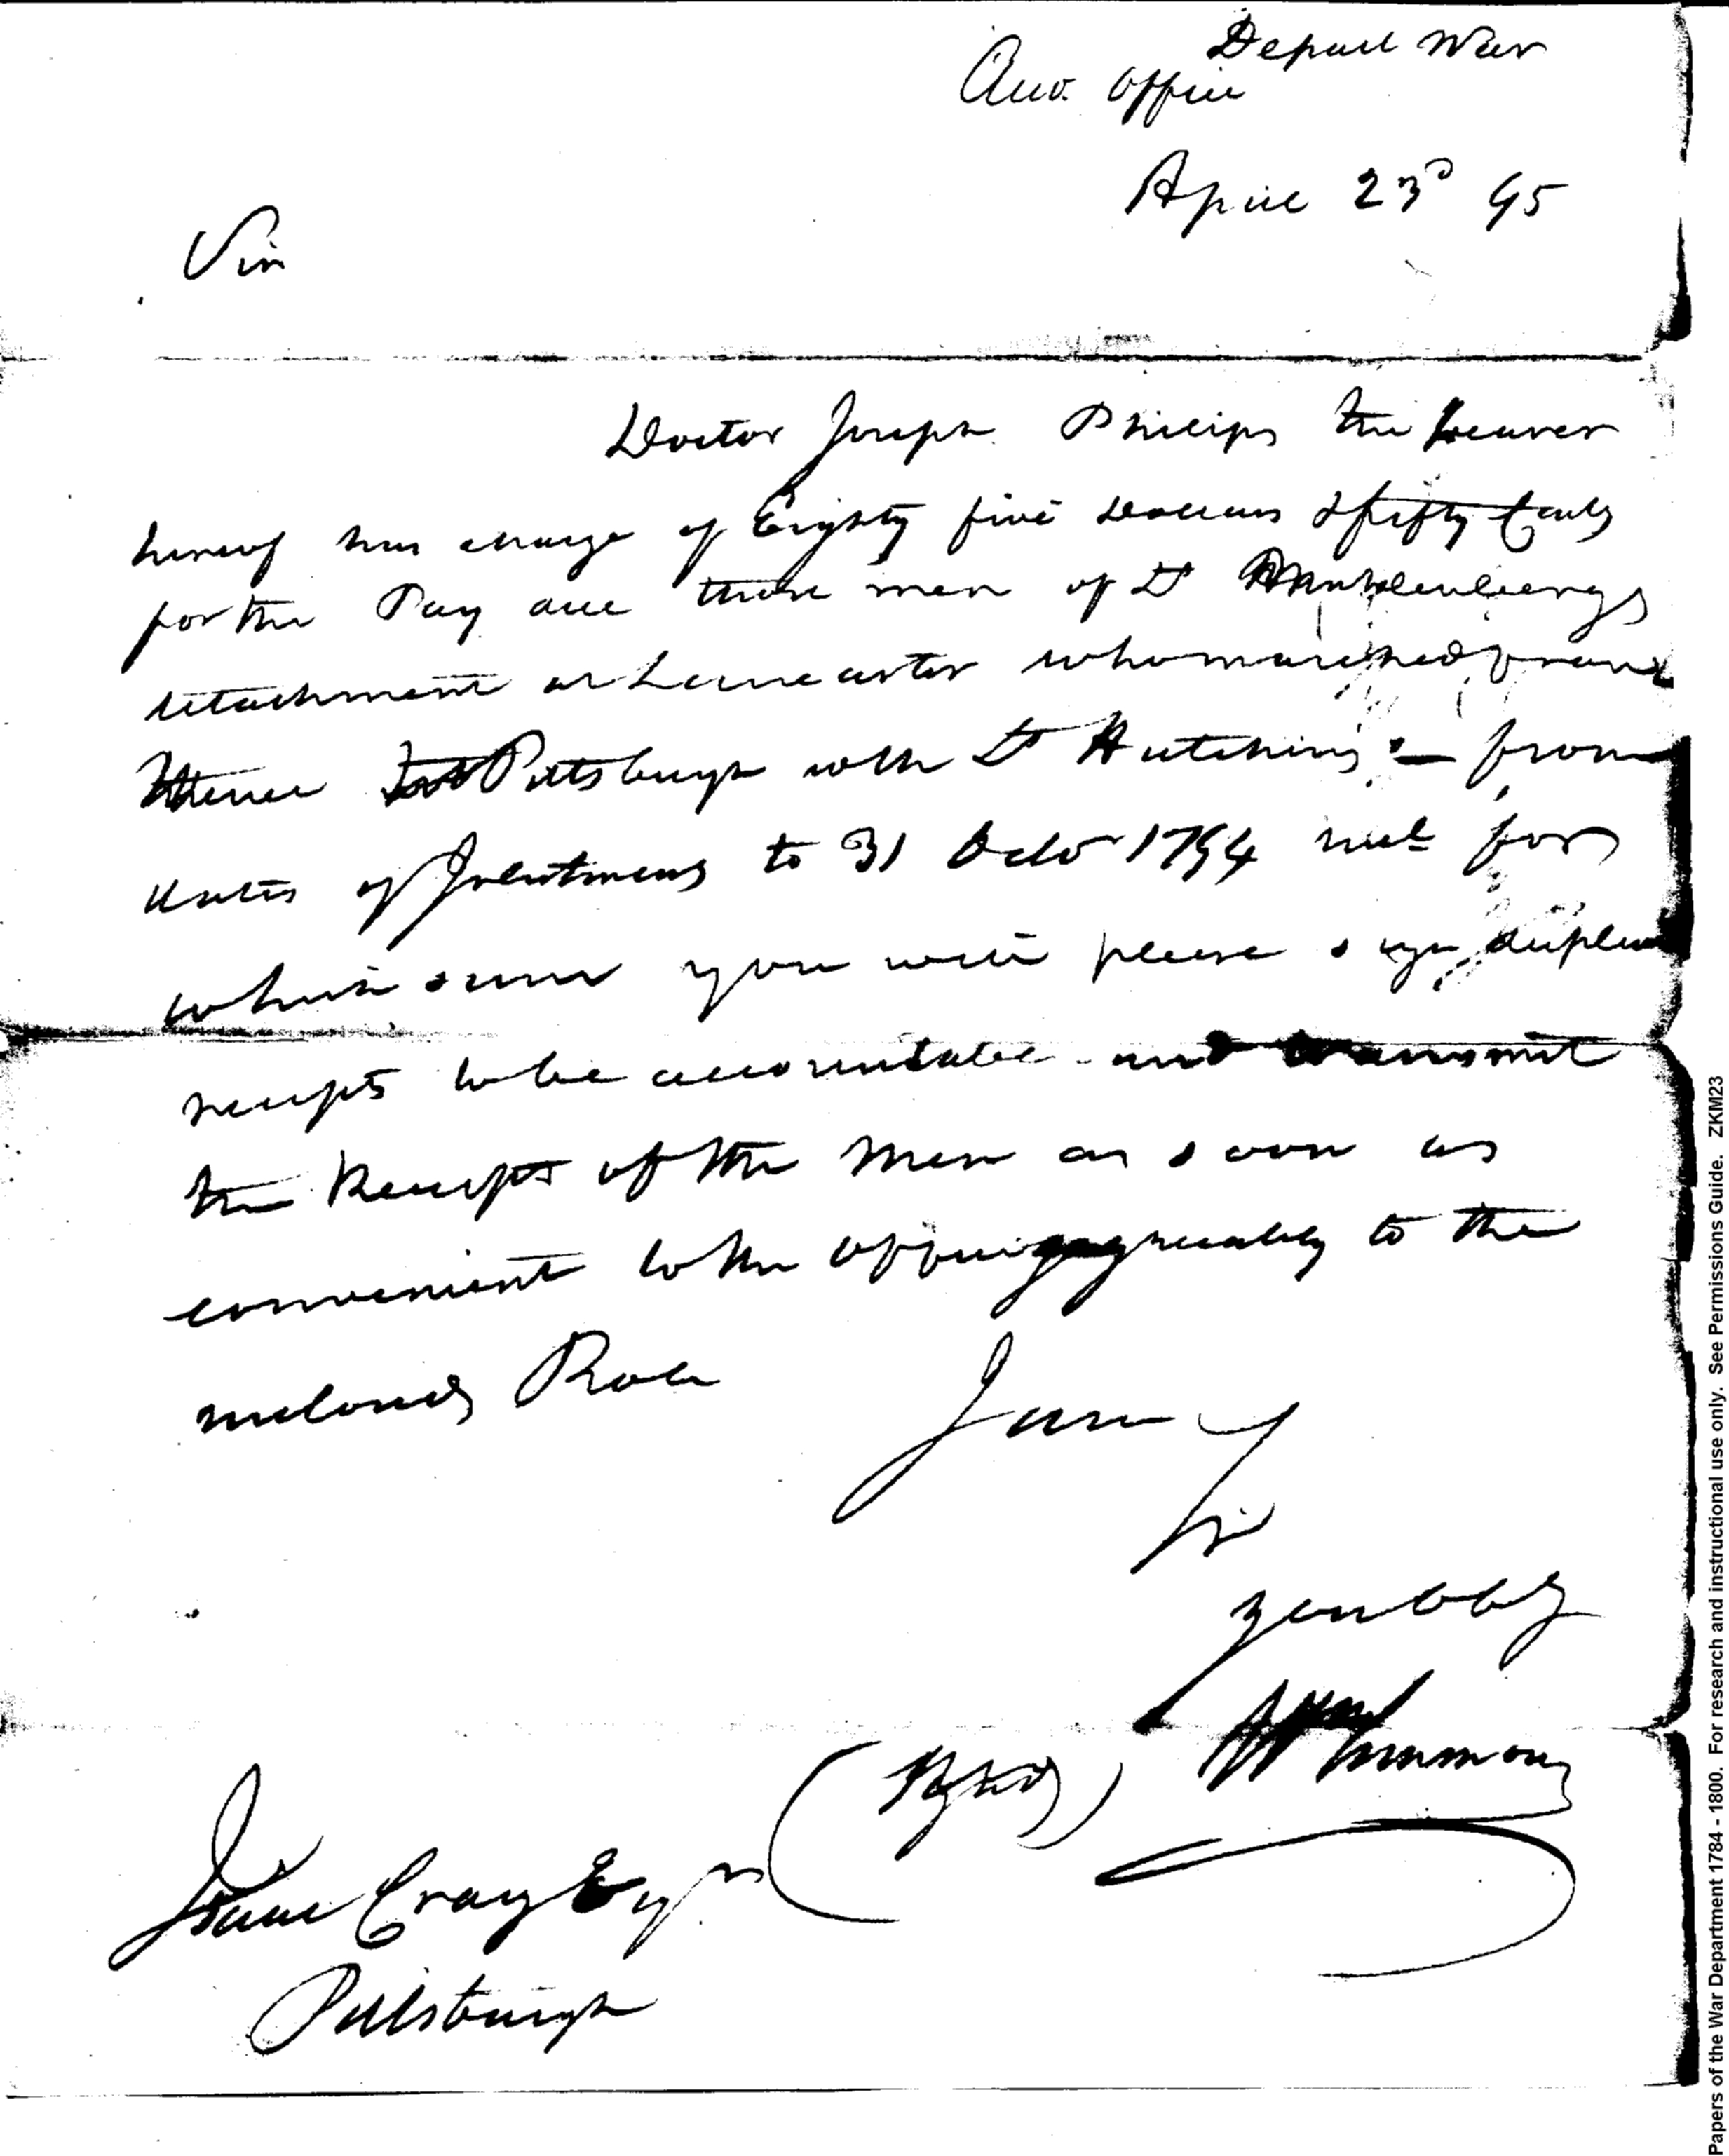 Depart War
Acco. Office
April 23d 95
Sir
Doctor Joseph Philips the bearer
hereof has charge of Eighty five Dollars & fifty Cents
for the Pay due those men of Lt Muhlenbergs
detachment at Lancaster who marched from
thence to Pittsburgh with Lt Hutchins — from
dates of Inlistment to 31 Octo 1794 for
which sum you will please sign duplicate
receipts to be accountable and transmit
the Receipts of the Men as soon as
convenient to the office agreeably to the
inclosed Roll
I am
Sir
your obt
(signed) W Simmons
Isaac Craig Esqr
Pittsburgh
Papers of the War Department 1784 - 1800. For research and instructional use only. See Permissions Guide. ZKM23